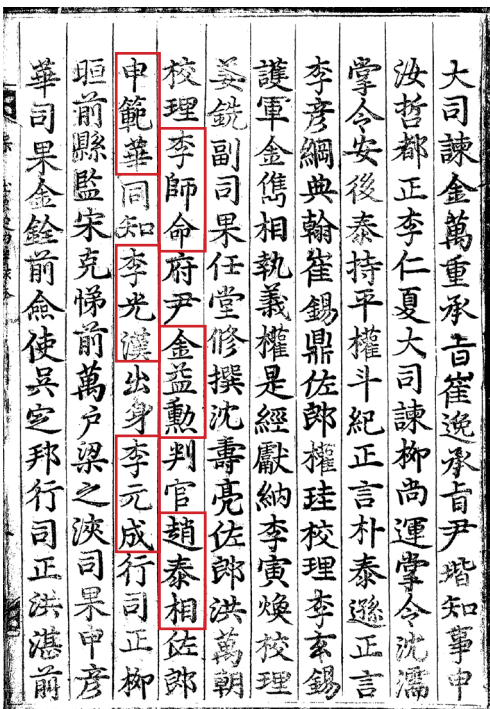 大司諫金萬重承旨崔逸承旨尹堦知事申
汝哲都正李仁夏大司諫柳尚運掌令沈濡
掌令安後泰持平權斗紀正言朴泰遜正言
李彦綱典翰崔錫鼎佐郎權珪校理李玄錫
護軍金儁相執義權是經獻納李寅煥校理
姜銑副司果任堂修撰沈壽亮佐郎洪萬朝
校理李師命府尹金益勳判官趙泰相佐郎
申範華同知李光漢出身李元成行司正柳
晅前縣監宋克悌前萬户梁之浹司果申彦
華司果金銓前僉使吳定邦行司正洪湛前